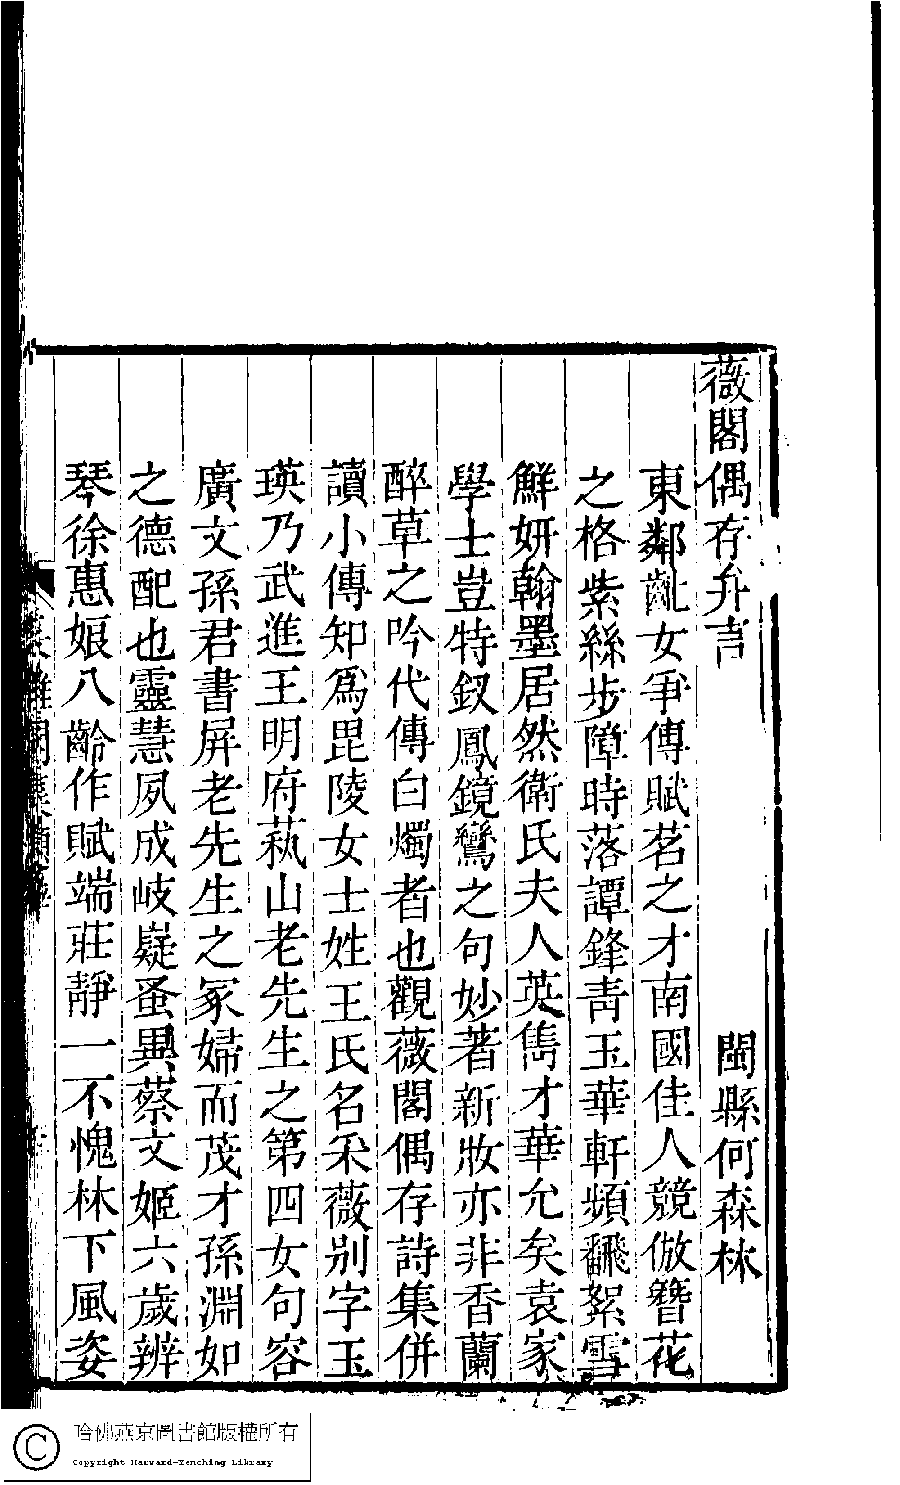 薇閣偶存弁言
閩縣何森林
東鄰齔女爭傳賦茗之才南國佳人競倣簪花
之格紫絲步障時落譚鋒青玉華軒頻飜絮雪
鮮妍翰墨居然衛氏夫人英雋才華允矣袁家
學士豈特釵鳳鏡鸞之句妙著新妝亦非香蘭
醉草之吟代傳白燭者也觀薇閣偶存詩集併
讀小傳知爲毘陵女士姓王氏名采薇别字玉
瑛乃武進王明府蓺山老先生之第四女句容
廣文孫君書屏老先生之冢婦而茂才孫淵如
之德配也靈慧夙成岐嶷蚤異蔡文姬六歲辨
琴徐惠娘八齡作賦端莊靜一不愧林下風姿
哈佛燕京圖書館版權所有
Copyright Harvard-Yenching Library